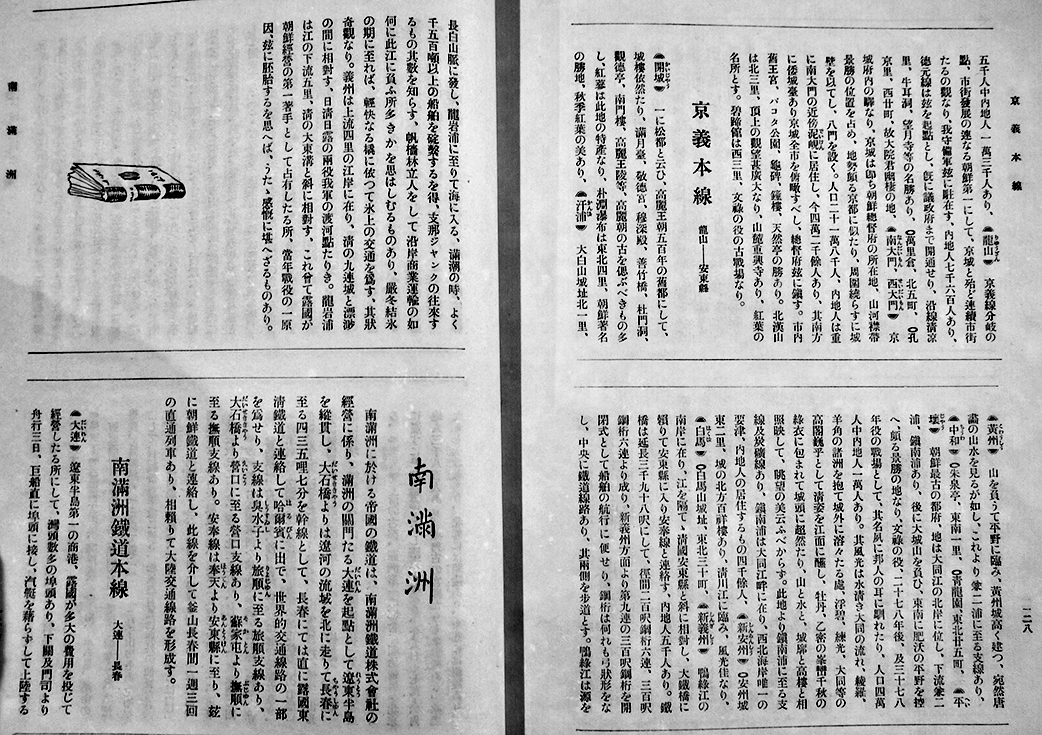 京義本線
五千人中内地人一萬三千人あり、龍山 京義線分岐の
點、市街發展の連なる朝鮮第一にして、京城と殆ど連續市街
たるの觀なり、我守備軍茲に駐在す、内地人七千六百人あり、
德元線は茲を起點とし、既に議政府まで開通せり、沿線淸凉
里、牛耳洞、望月寺等の名勝あり、萬里倉、北五町、孔
京里、西廿町、故大院君幽棲の地、南大門、西大門 京
城府内の驛なり、京城は卽ち朝鮮總督府の所在地、山河襟帶
景勝の位置を占め、地勢頗る京都に似たり、周圍繞らすに城
壁を以てし、八門を設く。人口二十一萬八千人、内地人は重
に南大門の近傍泥峴に居住し、今四萬二千餘人あり、其南方
に倭城臺あり京城全市を俯瞰すべし、總督府茲に鎭す。市内
舊王宮、パコタ公園、龜碑、鐘樓、天然亭の勝あり。北漢山
は北三里、頂上の觀望甚廣大なり、山麓重興寺あり、紅葉の
名所とす。碧蹄館は西三里、文祿の役の古戰場なり。
京義本線 龍山—安東縣
開城 一に松都と云ひ、高麗王朝五百年の舊都にして、
城樓依然たり、滿月臺、敬德宮、穆深殿、善竹橋、杜門洞、
觀德亭、南門樓、高麗王陵等、高麗朝の古を偲ぶべきもの多
し、紅蔘は此地の特產なり、朴淵瀑布は東北四里、朝鮮著名
の勝地、秋季紅葉の美あり、汗浦 大白山城址北一里、
黃州 山を負うて平野に臨み、黃州城高く建つ、宛然唐
畵の山水を見るが如し、これより兼二浦に至る支線あり。
中和 朱泉亭、東南一里、靑龍園、東北廿五町、平
壤 朝鮮最古の都府、地は大同江の北岸に位し、下流兼二
浦、鎭南浦あり、後に大城山を負ひ、東南に肥沃の平野を控
へ、頗る景勝の地なり文祿の役、二十七八年後、及三十七八
年役の戰場として、其名夙に邦人の耳に馴れたり、人口四萬
人中内地人一萬人あり。其風光は水淸き大同の流れ、綾羅、
羊角の諸洲を抱て城外に溶々たる處、浮碧、練光、大同等の
高閣巍乎として淸姿を江面に醮し、牡丹、乙密の峯巒千秋の
綠衣に包まれて城頭に超然たり、山と水と、城廓と高樓と相
照映して、眺望の美云ふべからす。此地より鎭南浦に至る支
線及炭礦線あり、鎭南浦は大同江畔に在り、西北海岸唯一の
要津、内地人の居住するもの四千餘人、新安州 安州城
東二里、城の北方百祥樓あり、淸川江に臨み、風光佳なり、
白馬 白馬山城址、東北三十町、新義州 鴨綠江の
南岸に在り、江を隔て、淸國安東縣と斜に相對し、大鐵橋に
賴りて安東縣に入り安奉線と連絡す、内地人五千人あり。鐵
橋は延長三千九十八呎にして、徑間二百呎鋼桁六連、三百呎
鋼桁六連より成り、新義州方面より第九連の三百呎鋼桁を開
閉式として船舶の航行に便せり、鋼桁は何れも弓狀形をな
し、中央に鐵道線路あり、其兩側を步道とす。鴨綠江は源を
一二八
長白山脈に發し、龍岩浦に至りて海に入る、滿潮の時、よく
千五百噸以上の船舶を碇繫するを得、支那ジャンクの往來す
るもの其數を知らす、帆檣林立人をして沿岸商業運輸の如
何に此江に負ふ所多きかを思はしむるものあり、嚴冬結氷
の期に至れば、輕快なる橇に依つて氷上の交通を爲す、其狀
奇觀なり。義州は上流四里の江岸に在り、淸の九連城と漂渺
の間に相對す、日淸日露の兩役我軍の渡河點たりき。龍岩浦
は江の下流五里、淸の大東溝と斜に相對す、これ會て露國が
朝鮮經營の第一著手として占有したる所、當年戰役の一原
因、玆に胚胎するを思へば、うたゝ感慨に堪へざるものあり。
南滿洲
南滿洲
南滿洲に於ける帝國の鐵道は、南滿洲鐵道株式會社の
經營に係り、滿洲の關門たる大連を起點として遼東半島
を縱貫し、大石橋よりは遼河の流域を北に走りて長春に
至る四三五哩七分を幹線として、長春にては直に露國東
淸鐵道と連絡して哈爾賓に出で、世界的交通線路の一部
を爲せり、支線は臭水子より旅順に至る旅順支線あり、
大石橋より營口に至る營口支線あり、蘇家屯より撫順に
至る撫順支線あり。安奉線は奉天より安東縣に至り、玆
に朝鮮鐵道と連絡し、此線を介して釜山長春間一週三回
の直通列車あり、相賴りて大陸交通線路を形成す。
南滿洲鐵道本線 大連—長春
大連 遼東半島第一の商港、露國が多大の費用を投じて
經營したる所にして、灣頭數多の埠頭あり、下關及門司より
舟行三日、巨船直に埠頭に接し、汽艇を藉らずして上陸する